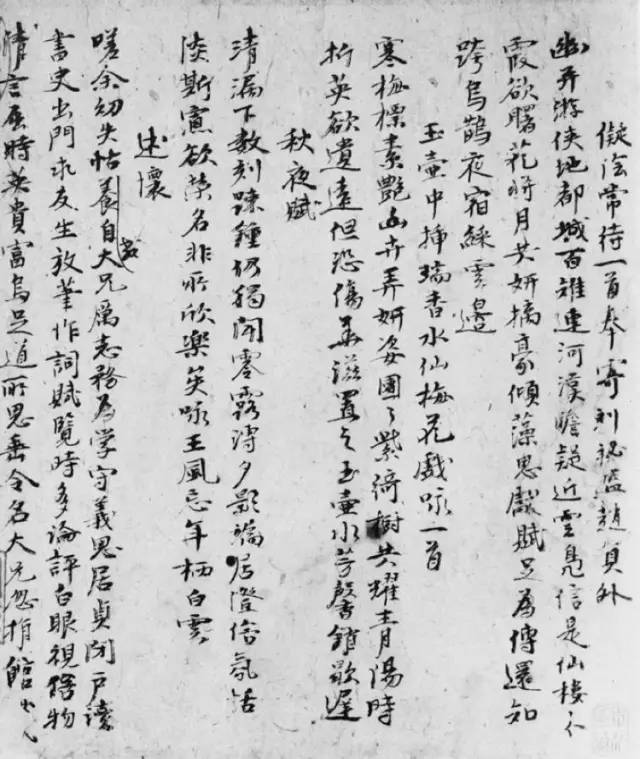 擬陰常待一首奉寄劉秘監趙員外
幽弄游俠地都城百雉連河漢瞻疑近雲是信是仙樓人
霞欲曙花將月共妍摛豪傾藻思獻賦足為傳還知
跨烏鵲夜宿綵雲邊
玉壺中插瑞香水仙梅花戲詠一首
寒梅標素艷幽卉弄妍姿團〻紫綺樹共耀青陽時
折英欲遺遠但恐傷華滋置之玉壺水芳馨銷歇遲
秋夜賦
清漏下數刻疎鍾仍獨聞零露溥夕影端居澄俗氛恬
淡斯憲欲榮名非所欣樂矣咏王風忘年栖白雲
述懷
嗟余幼失怙養自大兄為志務為學守義思居貞閉戶讀
書史出門求友生放筆作詞賦覽時多論評白眼視俗物
清言屈時英貴富烏足道所思垂令名大兄忽捐館